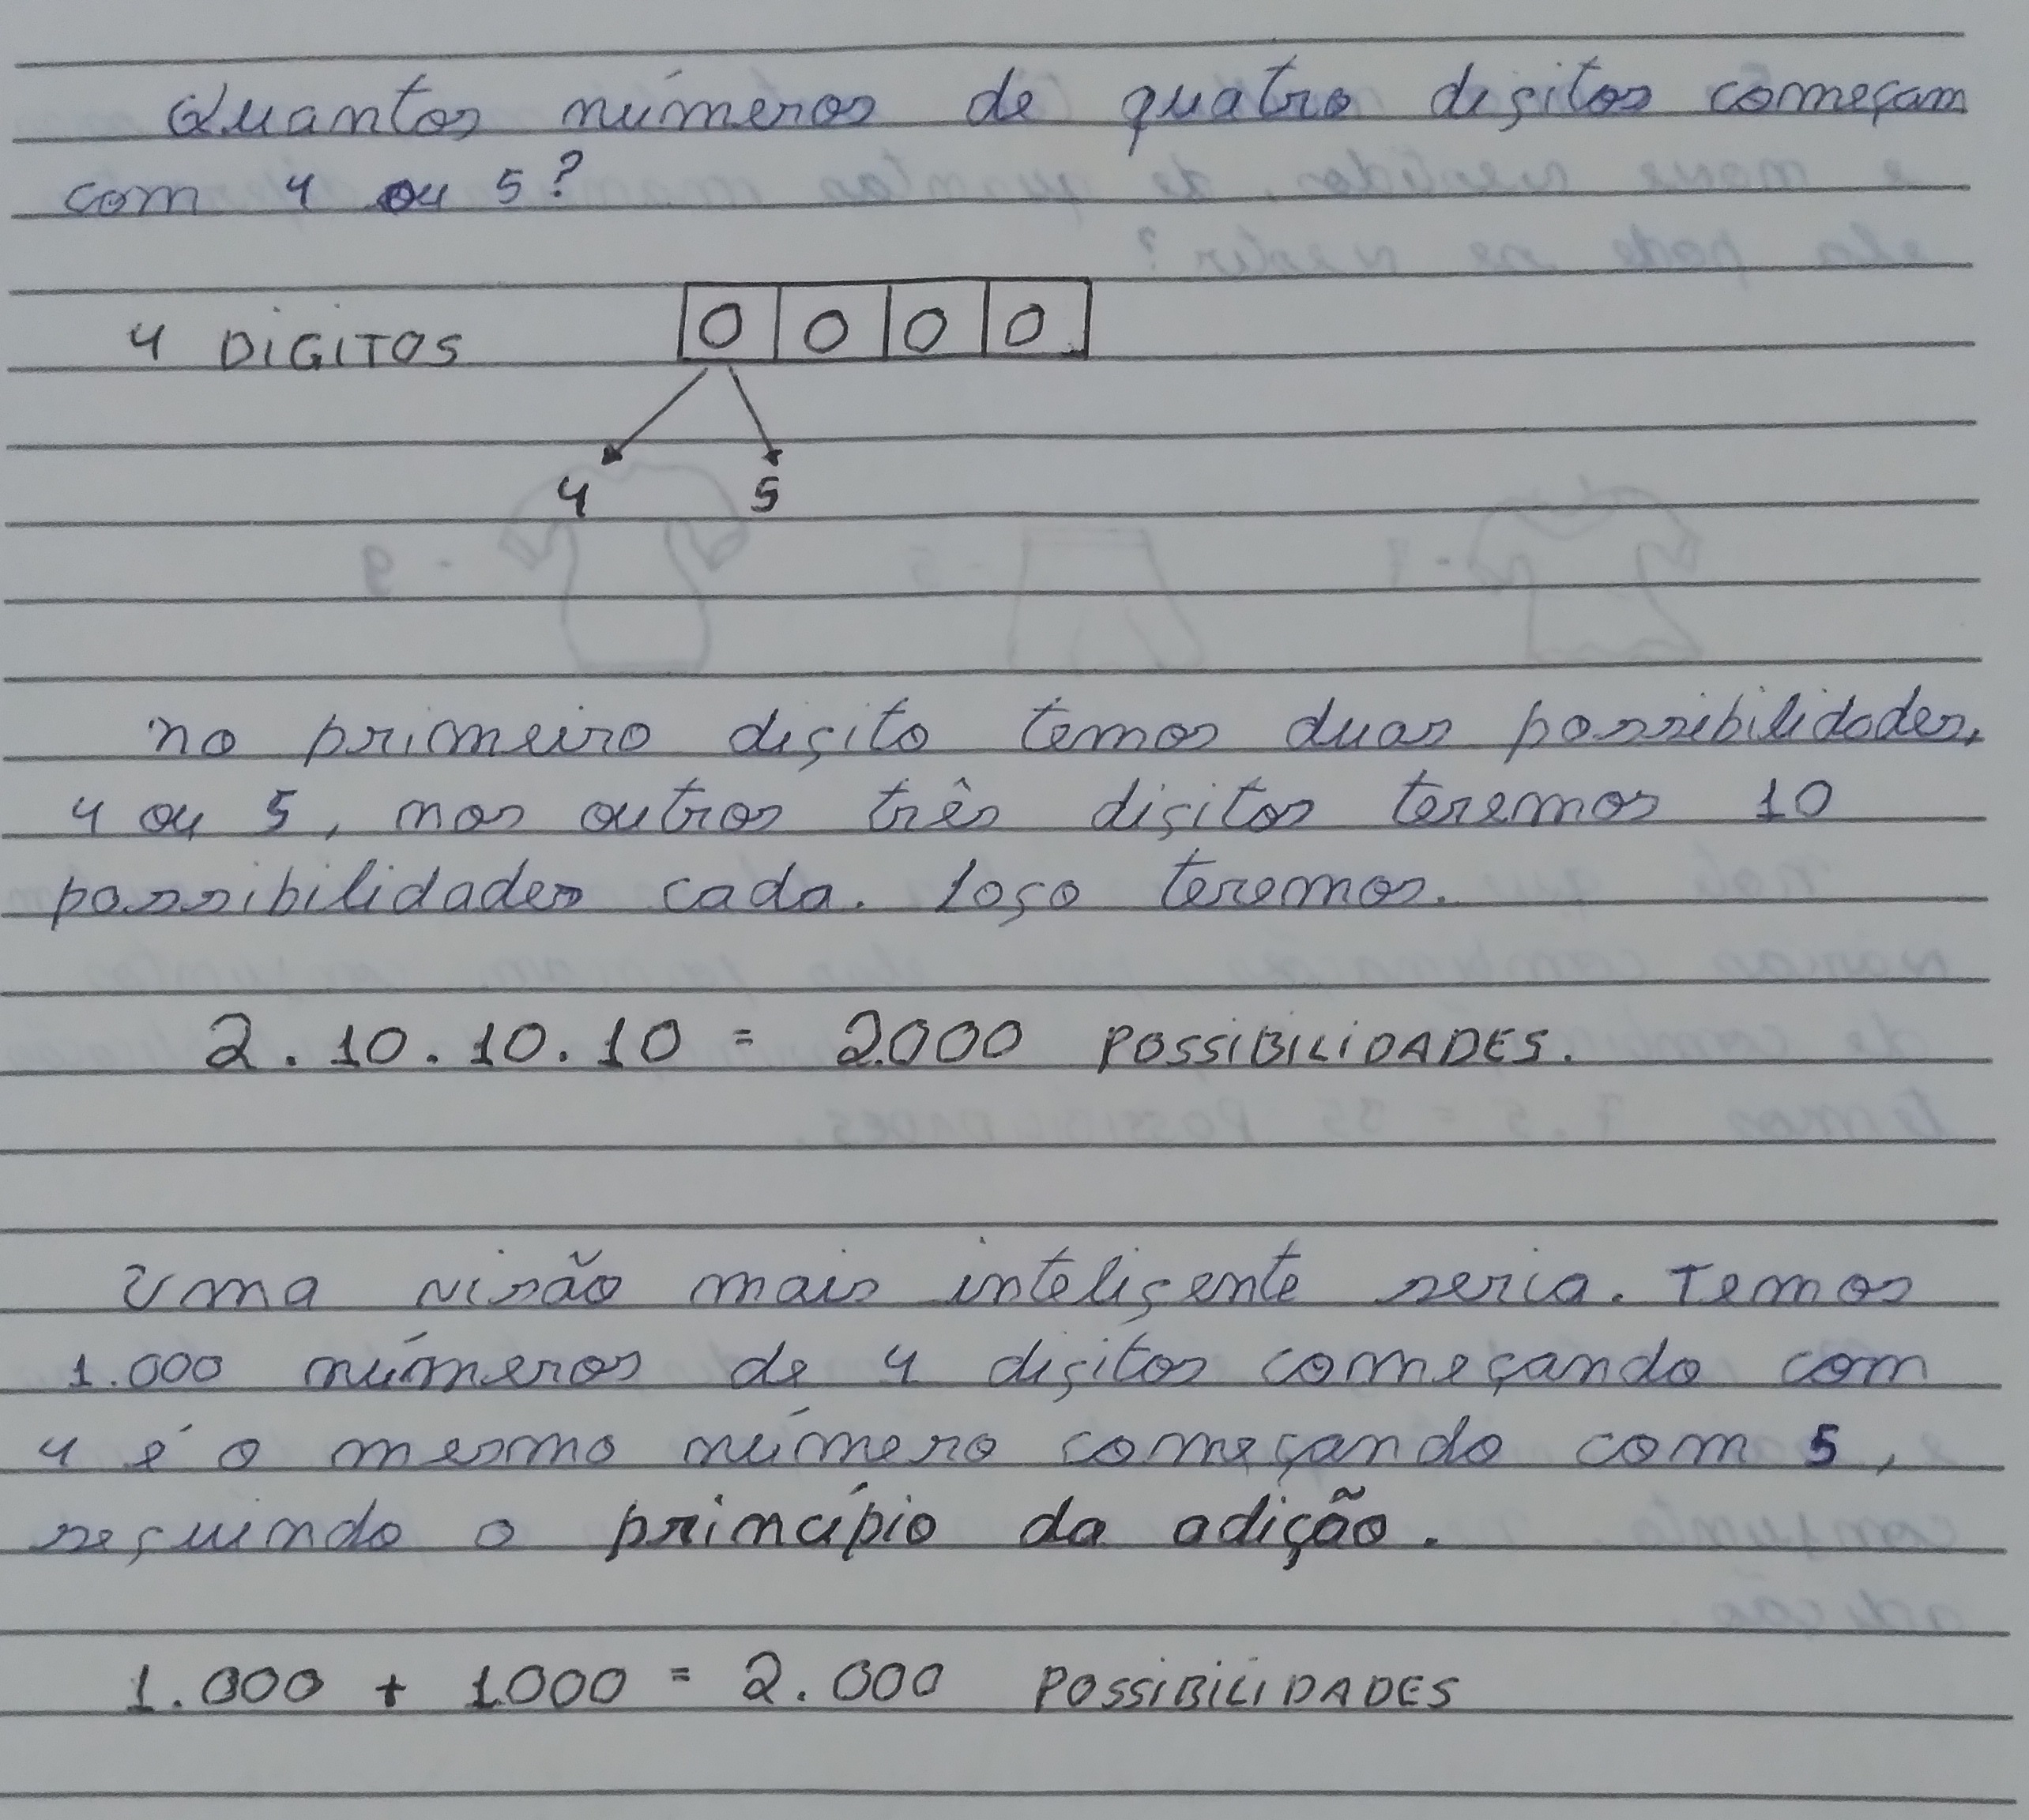 Quantos números de quatro digitos começam
com 4 ou 5?
4 DIGITOS 0 0 0 0
4 5
no primeiro digito temos duas possibilidades,
4 ou 5, nos outros três digitos teremos 10
possibilidades cada. logo teremos.
2.10.10.10 = 2.000 POSSIBILIDADES.
Uma visão mais inteligente seria. Temos
1.000 números de 4 digitos começando com
4 é o mesmo número começando com 5,
seguindo o princípio da adição.
1.000 + 1.000 = 2.000 POSSIBILIDADES